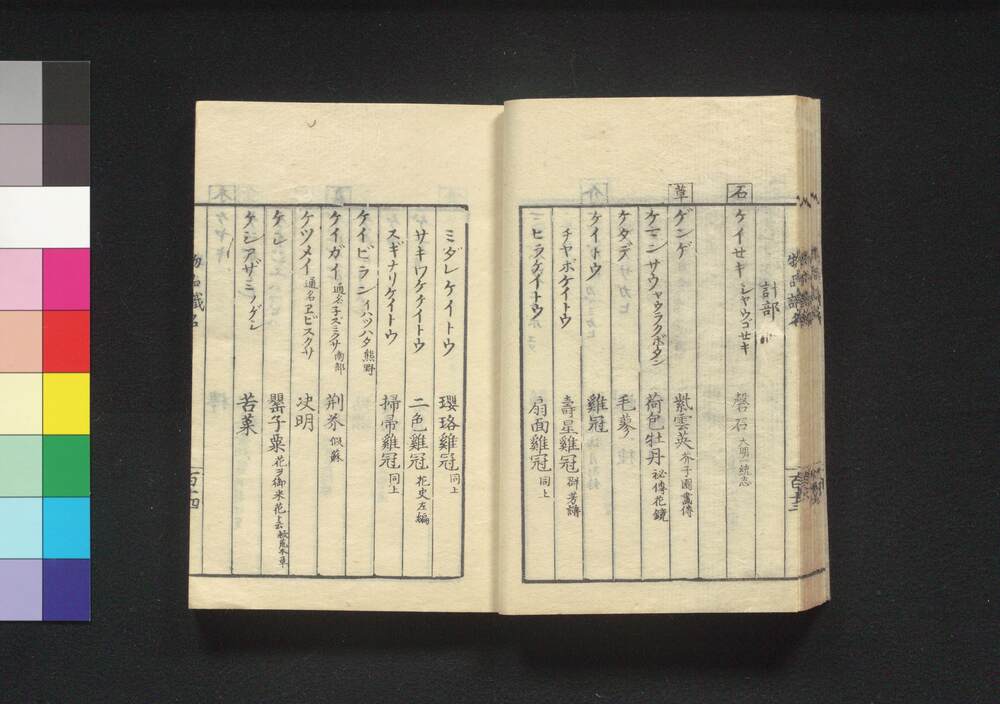 計部
石
ケイセキ シャウゴセキ 磬石 大明一統志
草
ゲンゲ 紫雲英 芥子園畫傳
ケマンサウ ヤウラクボタン 荷包牡丹 祕傳花鏡
ケタデ 毛蓼
ケイトウ 雞冠
チヤボケイトウ 壽星雞冠 群芳譜
ヒラケイトウ 扇面雞冠 同上
ミダレケイトウ 瓔珞雞冠 同上
サキワケケイトウ 二色雞冠 花史左編
スギナリケイトウ 掃帚雞冠 同上
ケイビラン イハツハタ 熊野
ケイガイ 通名 子ズミクサ 南部 荊芥 假蘇
ケツメイ 通名 ヱビスクサ 决明
ケシ 罌子粟 花ヲ御米花ト云 救荒本草
ケシアザミ ノゲシ 苦菜
百十四